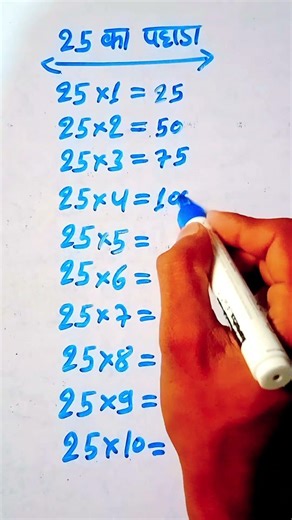 25 का पहाडा
25×1=25
25×2=50
25×3=75
25×4=100
25×5=
25×6=
25×7=
25×8=
25×9=
25×10=